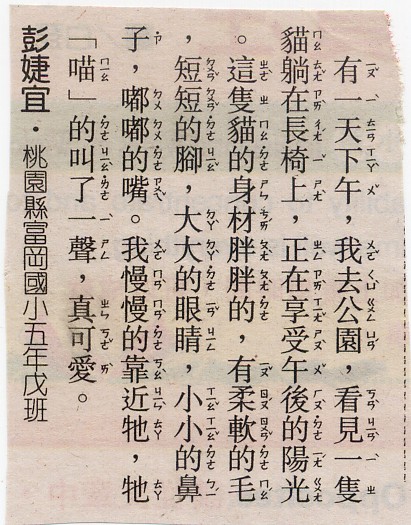 有一天下午，我去公園，看見一隻
貓躺在長椅上，正在享受午後的陽光
。這隻貓的身材胖胖的，有柔軟的毛
，短短的腳，大大的眼睛，小小的鼻
子，嘟嘟的嘴。我慢慢的靠近牠，牠
「喵」的叫了一聲，真可愛。
彭婕宜·桃園縣富岡國小五年戊班